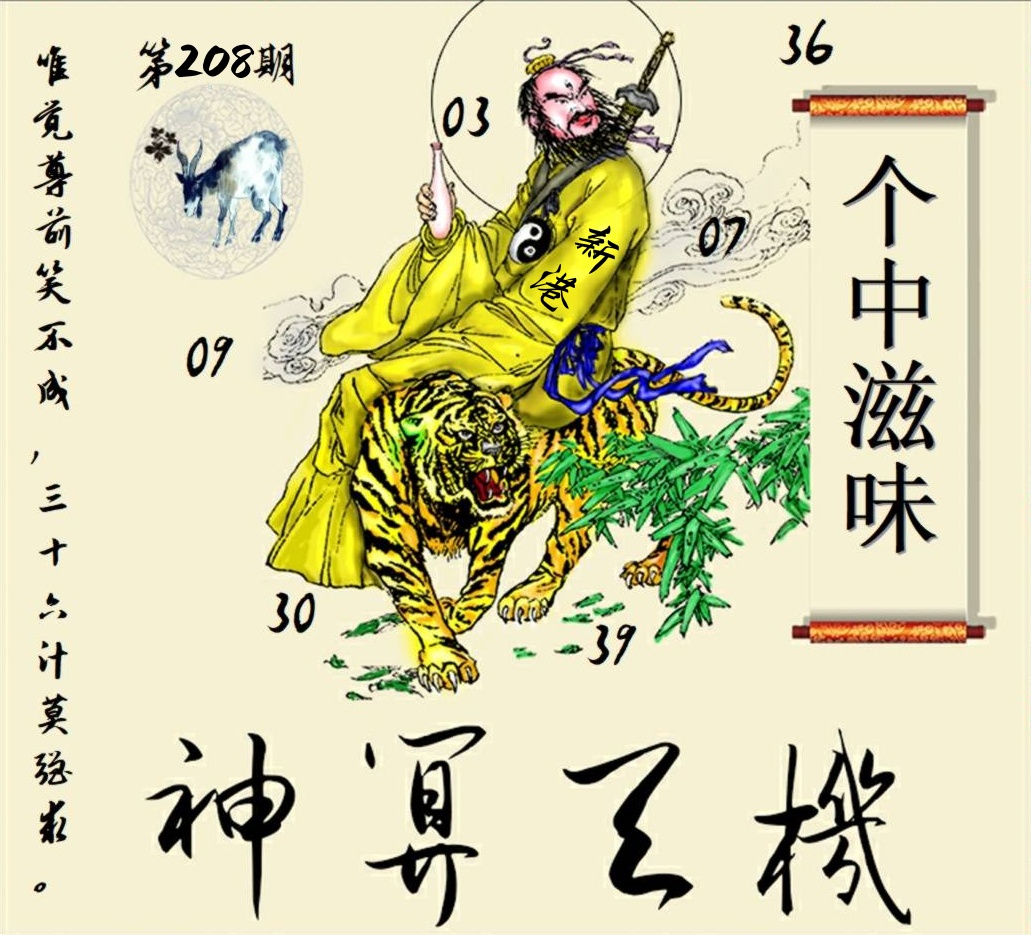 唯觉尊前笑不成,三十六计莫强求。
第208期
36
03
07
新港
09
个中滋味
30
39
神算天机